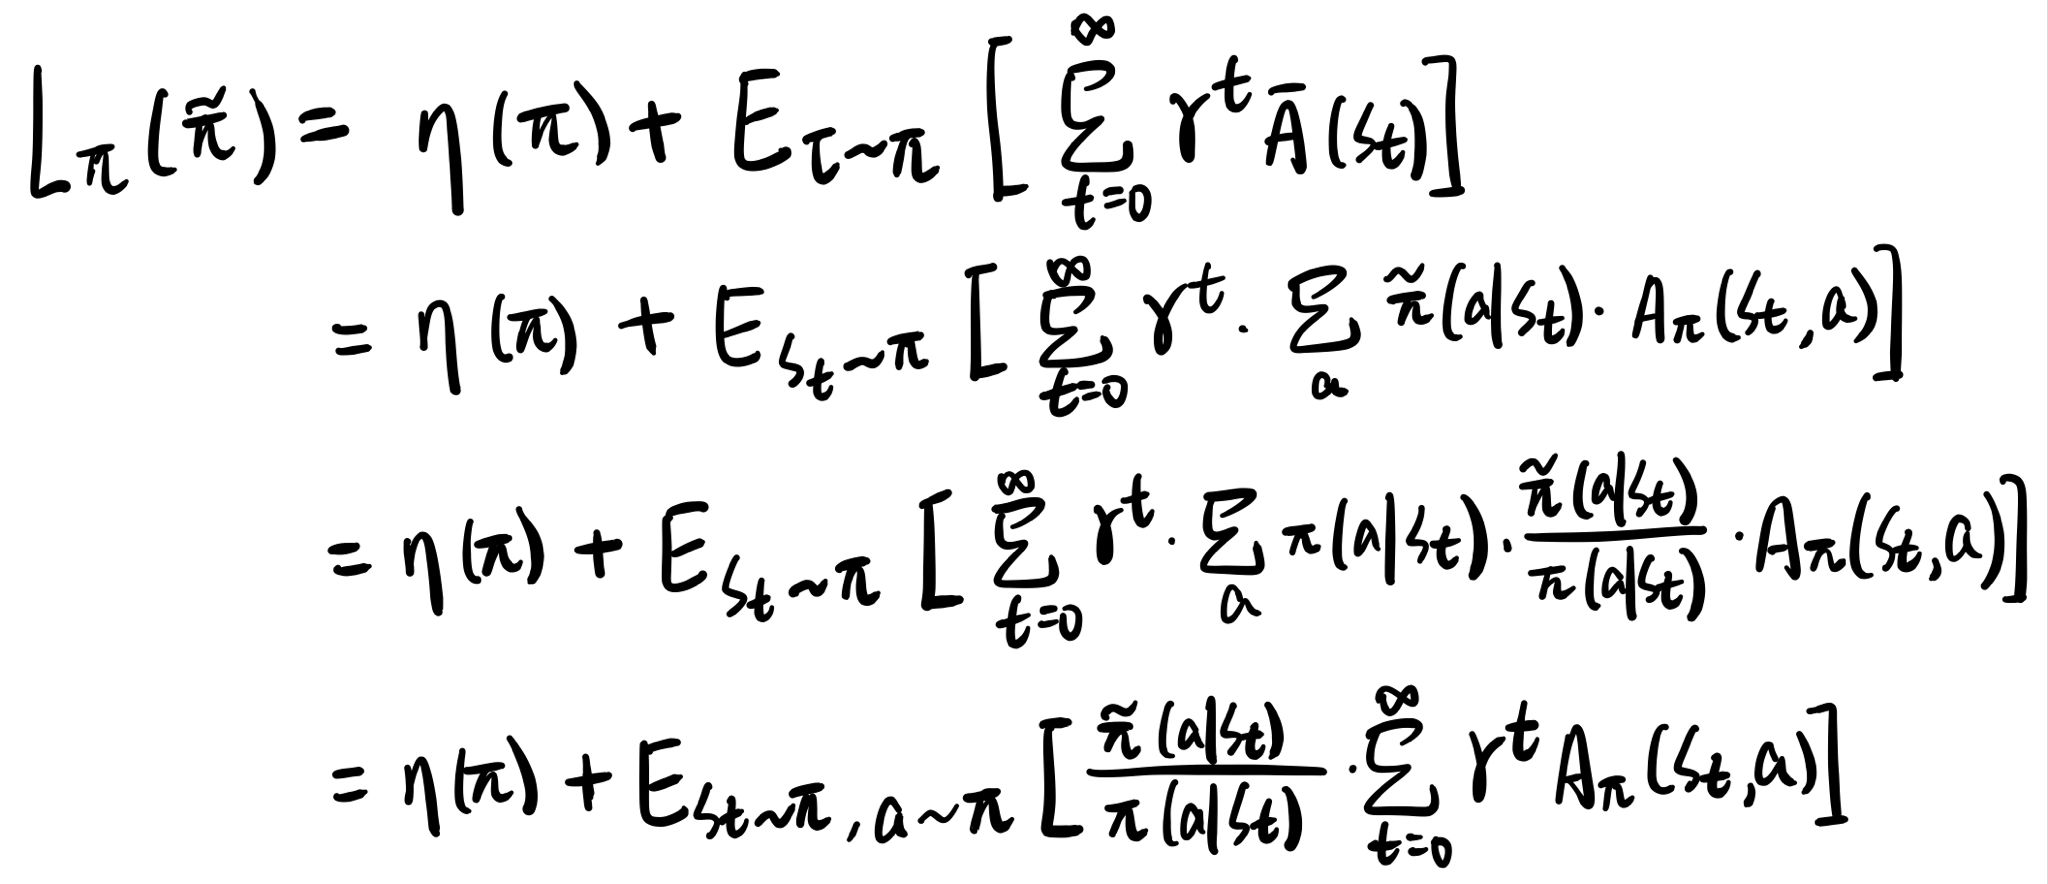 L_π(π̃) = η(π) + E_{τ∼π} [ ∑_{t=0}^{∞} γ^t Ā(s_t) ]
= η(π) + E_{s_t∼π} [ ∑_{t=0}^{∞} γ^t · ∑_a π̃(a|s_t) · A_π(s_t, a) ]
= η(π) + E_{s_t∼π} [ ∑_{t=0}^{∞} γ^t · ∑_a π(a|s_t) · \frac{π̃(a|s_t)}{π(a|s_t)} · A_π(s_t, a) ]
= η(π) + E_{s_t∼π, a∼π} [ \frac{π̃(a|s_t)}{π(a|s_t)} · ∑_{t=0}^{∞} γ^t A_π(s_t, a) ]